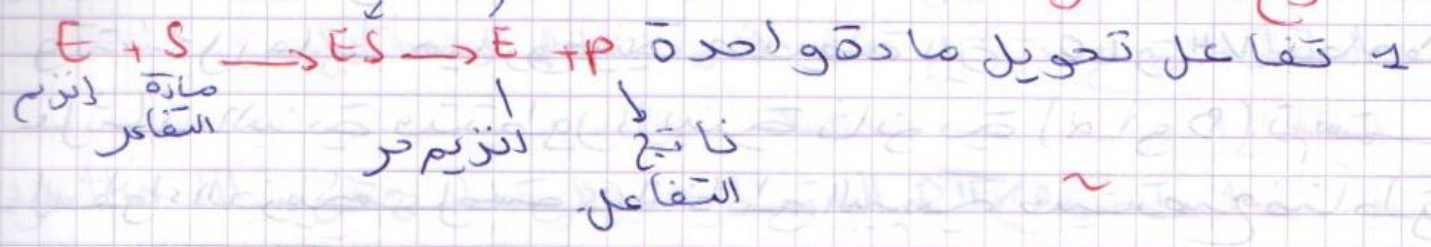 1 تفاعل تحويل مادة واحدة E + S → ES → E + P
إنزيم مادة التفاعل انزيم حر ناتج التفاعل